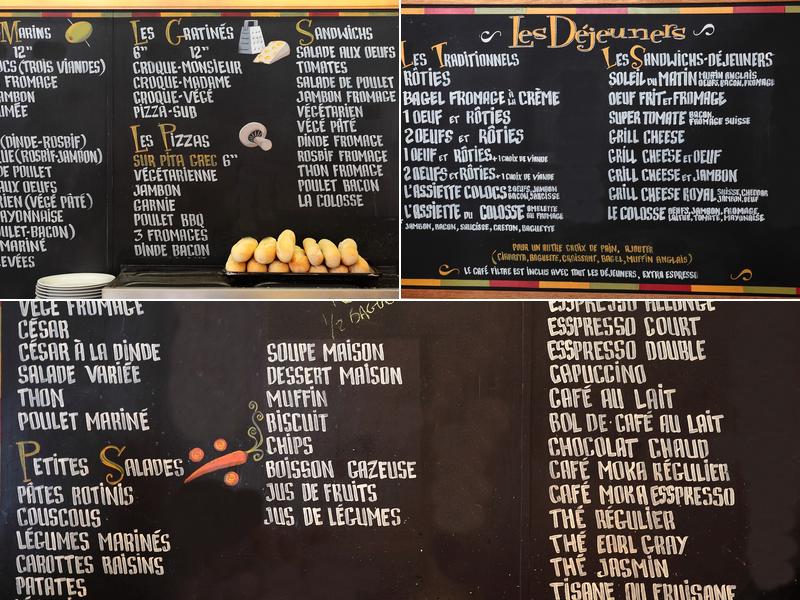 Marins
12"
OCS (TROIS VIANDES)
FROMAGE
AMBON
(DINDE-ROSBIF)
(ROSBIF-JAMBON)
DE POULET
AUX OEUFS
RIEN (VÉGÉ PÂTÉ)
MAYONNAISE
(POULET-BACON)
MARINÉ
LEVÉES
Les Gratinés
6" 12"
CROQUE-MONSIEUR
CROQUE-MADAME
CROQUE-VÉGÉ
PIZZA-SUB
Les Pizzas
SUR PITA GREC 6"
VÉGÉTARIENNE
JAMBON
GARNIE
POULET BBQ
3 FROMAGES
DINDE BACON
Sandwichs
SALADE AUX OEUFS
TOMATES
SALADE DE POULET
JAMBON FROMAGE
VÉGÉTARIEN
VÉGÉ PÂTÉ
DINDE FROMAGE
ROSBIF FROMAGE
THON FROMAGE
POULET BACON
LA COLOSSE
Les Déjeuners
Les Traditionnels
RÔTIES
BAGEL FROMAGE à la CRÈME
1 OEUF ET RÔTIES
2 OEUFS ET RÔTIES
1 OEUF ET RÔTIES +1 CHOIX DE VIANDE
2 OEUFS ET RÔTIES +1 CHOIX DE VIANDE
L'ASSIETTE COLOCS 2 OEUFS, JAMBON
BACON, SAUCISSE
L'ASSIETTE DU COLOSSE OMELETTE
AU FROMAGE
JAMBON, BACON, SAUCISSE, CRETON, BAGUETTE
Les Sandwichs-Déjeuners
SOLEIL DU MATIN MUFFIN ANGLAIS
OEUFS, BACON, FROMAGE
OEUF FRIT ET FROMAGE
SUPER TOMATE BACON,
FROMAGE SUISSE
GRILL CHEESE
GRILL CHEESE ET OEUF
GRILL CHEESE ET JAMBON
GRILL CHEESE ROYAL SUISSE, CHEDDAR
JAMBON, OEUF
LE COLOSSE OEUFS, JAMBON, FROMAGE,
LAITUE, TOMATE, MAYONAISE
POUR UN AUTRE CHOIX DE PAIN, AJOUTER
(CIABATTA, BAGUETTE, CROISSANT, BAGEL, MUFFIN ANGLAIS)
LE CAFÉ FILTRE EST INCLUS AVEC TOUT LES DÉJEUNERS, EXTRA ESPRESSO
VÉGÉ FROMAGE
CÉSAR
CÉSAR À LA DINDE
SALADE VARIÉE
THON
POULET MARINÉ
Petites Salades
PÂTES ROTINIS
COUSCOUS
LÉGUMES MARINÉS
CAROTTES RAISINS
PATATES
1/2 BAGUE
SOUPE MAISON
DESSERT MAISON
MUFFIN
BISCUIT
CHIPS
BOISSON GAZEUSE
JUS DE FRUITS
JUS DE LÉGUMES
ESSPRESSO ALLONGÉ
ESSPRESSO COURT
ESSPRESSO DOUBLE
CAPUCCINO
CAFÉ AU LAIT
BOL DE CAFÉ AU LAIT
CHOCOLAT CHAUD
CAFÉ MOKA RÉGULIER
CAFÉ MOKA ESSPRESSO
THÉ RÉGULIER
THÉ EARL GRAY
THÉ JASMIN
TISANE OU FRUISANE